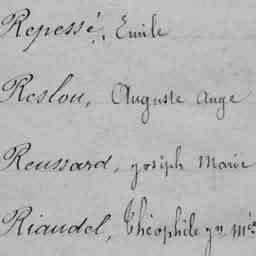 Repessé, Emile
Reslou, Auguste Ange
Reussard, Joseph Marie
Riaudel, Théophile